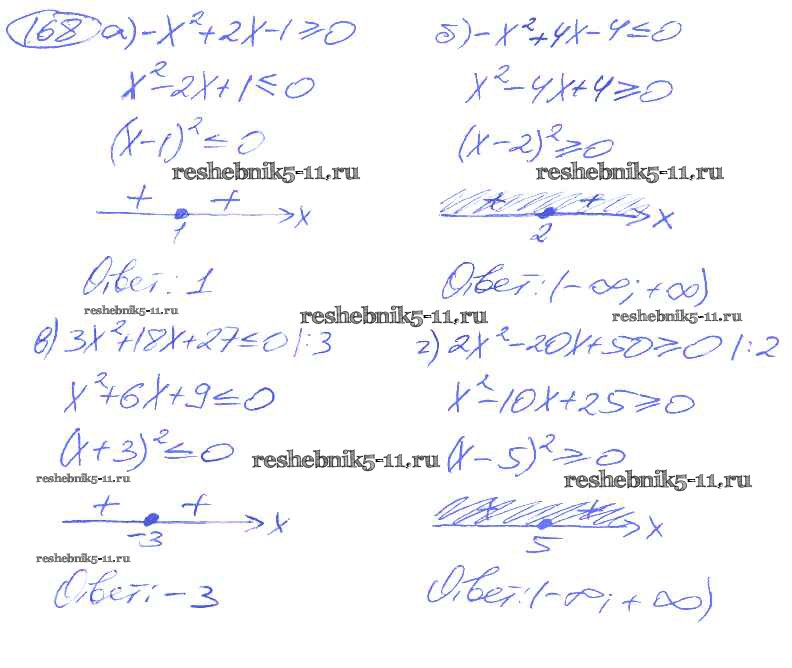 168 а) -x²+2x-1≥0
x²-2x+1≤0
(x-1)²≤0
reshebnik5-11.ru
+ +
1 x
Ответ: 1
reshebnik5-11.ru
б) -x²+4x-4≤0
x²-4x+4≥0
(x-2)²≥0
reshebnik5-11.ru
+ +
2 x
Ответ: (-∞; +∞)
reshebnik5-11.ru
reshebnik5-11.ru
в) 3x²+18x+27≤0 |:3
x²+6x+9≤0
(x+3)²≤0
reshebnik5-11.ru
reshebnik5-11.ru
+ +
-3 x
reshebnik5-11.ru
Ответ: -3
г) 2x²-20x+50≥0 |:2
x²-10x+25≥0
(x-5)²≥0
reshebnik5-11.ru
+ +
5 x
Ответ: (-∞; +∞)